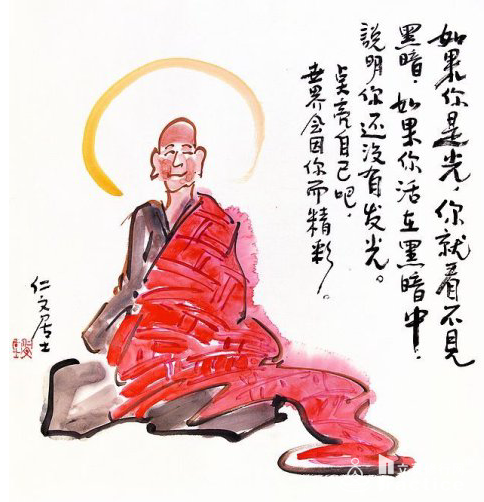 如果你是光，你就看不见
黑暗，如果你活在黑暗中，
說明你还没有发光。
点亮自己吧，
世界会因你而精彩。
仁文居士